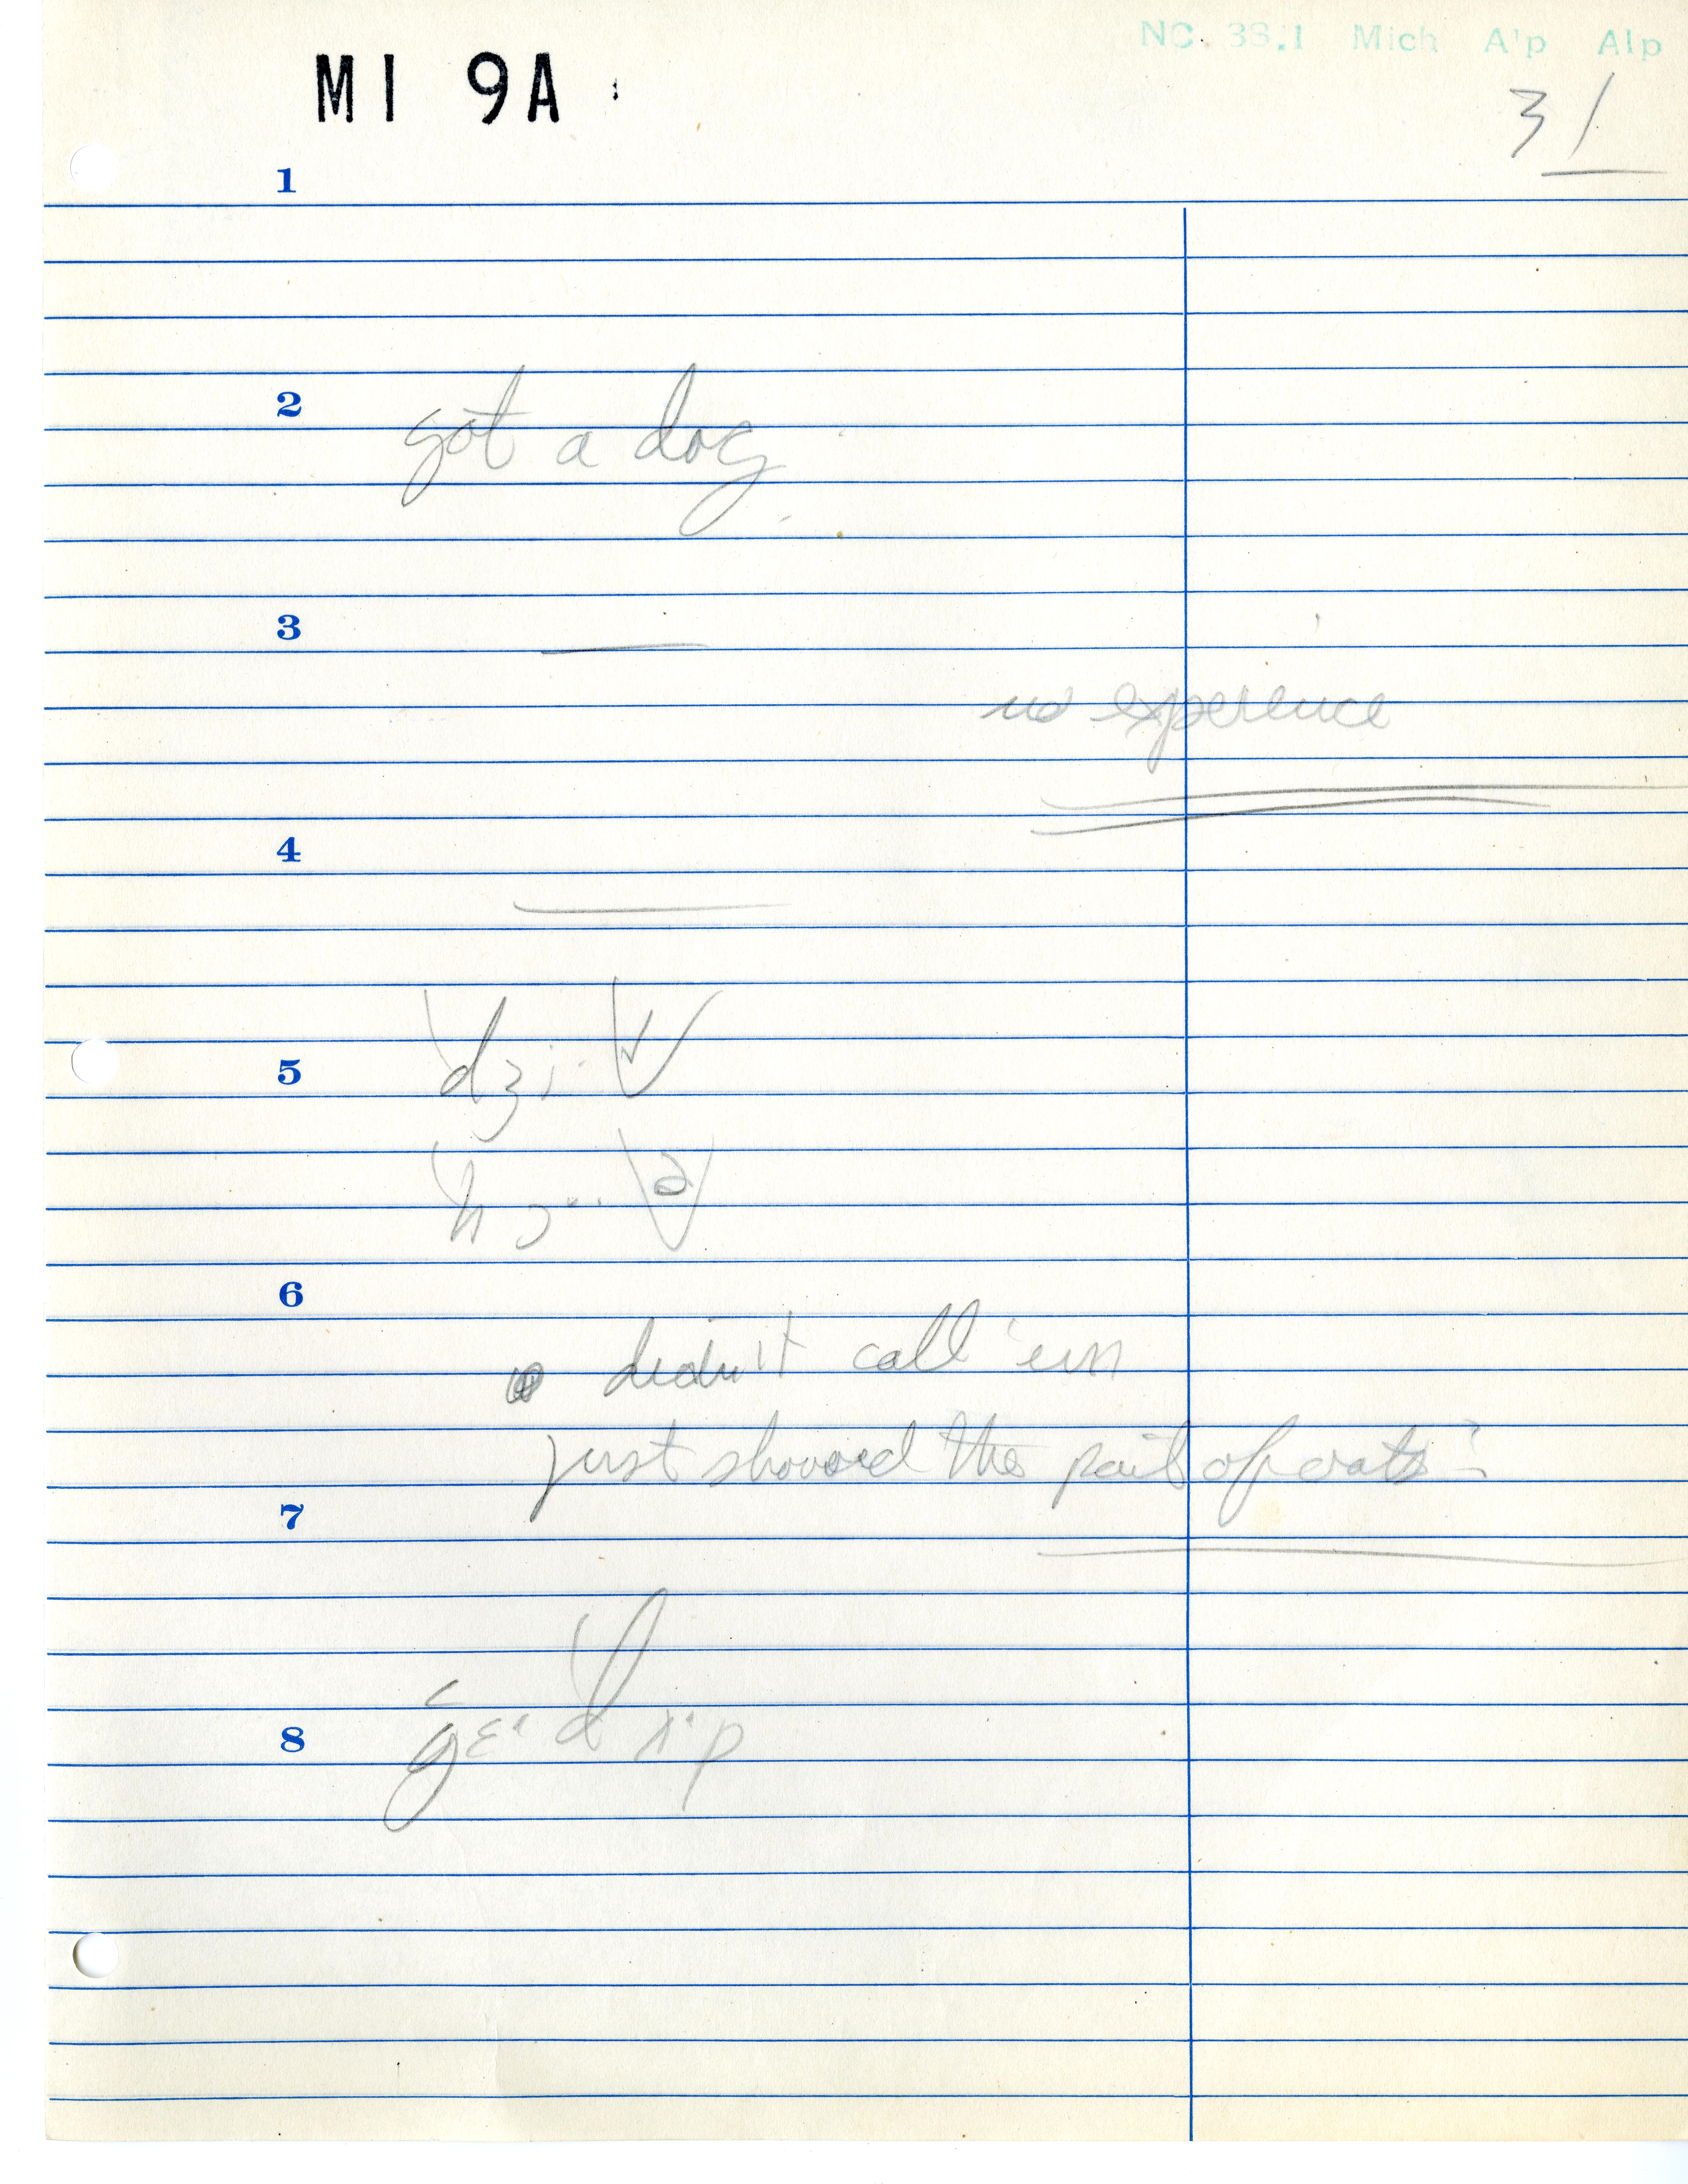 NC. 38.1 Mich Alp Alp
MI 9A
31
1
2
got a dog
3
no experience
4
5
6
didn't call 'em
just showed the pail of oats
7
8